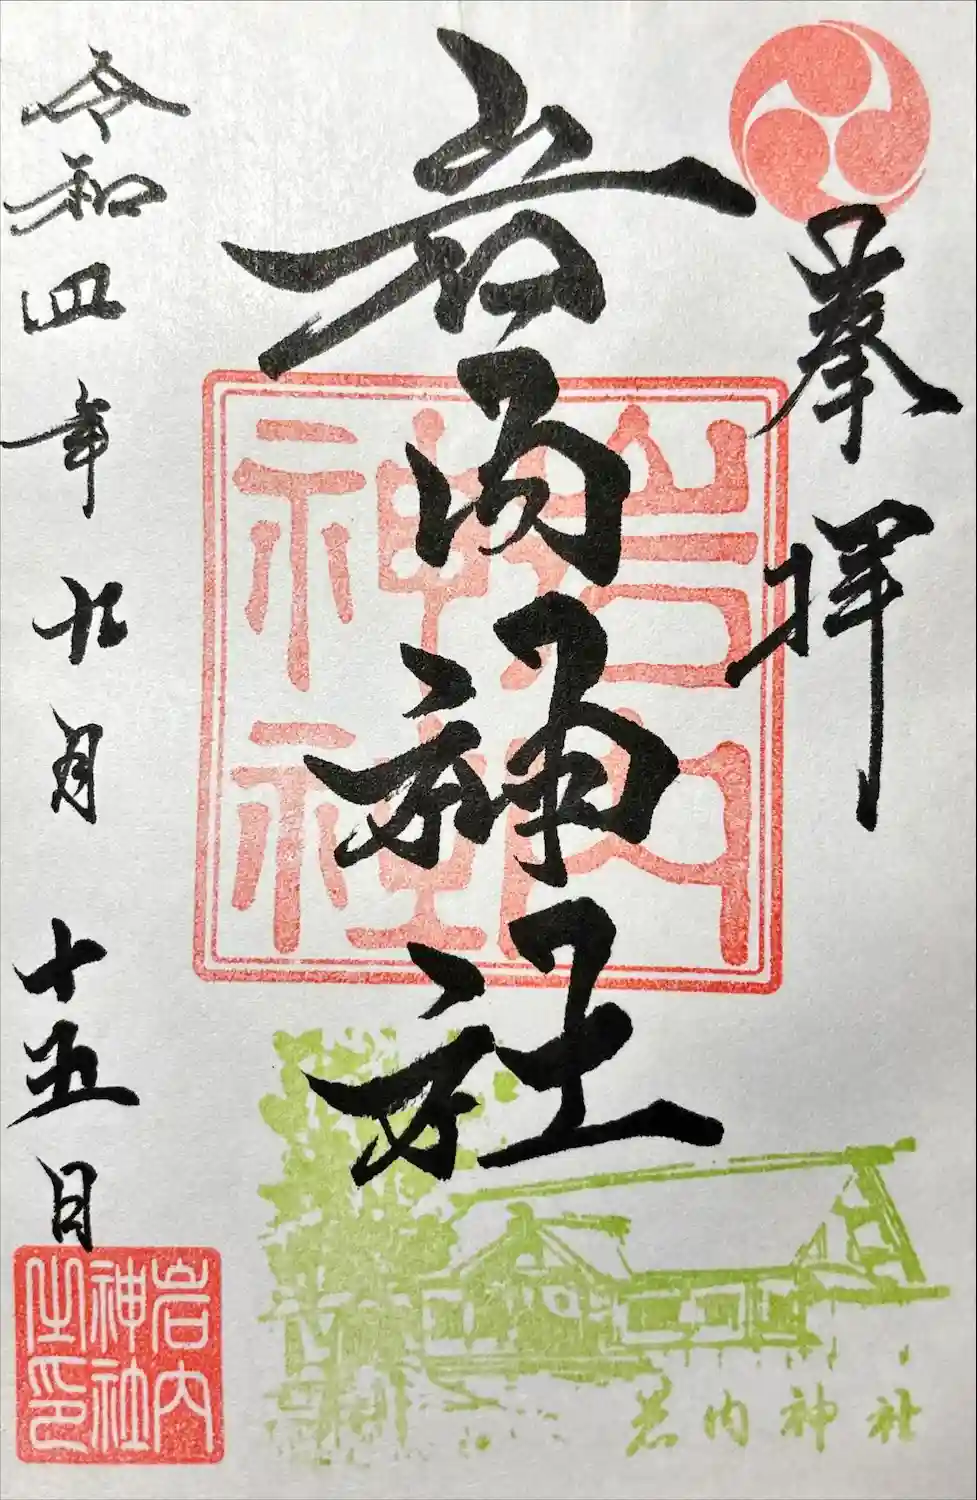 奉拝
岩内神社
令和四年九月十五日
岩内
神社
岩内
神社
之印
岩内神社